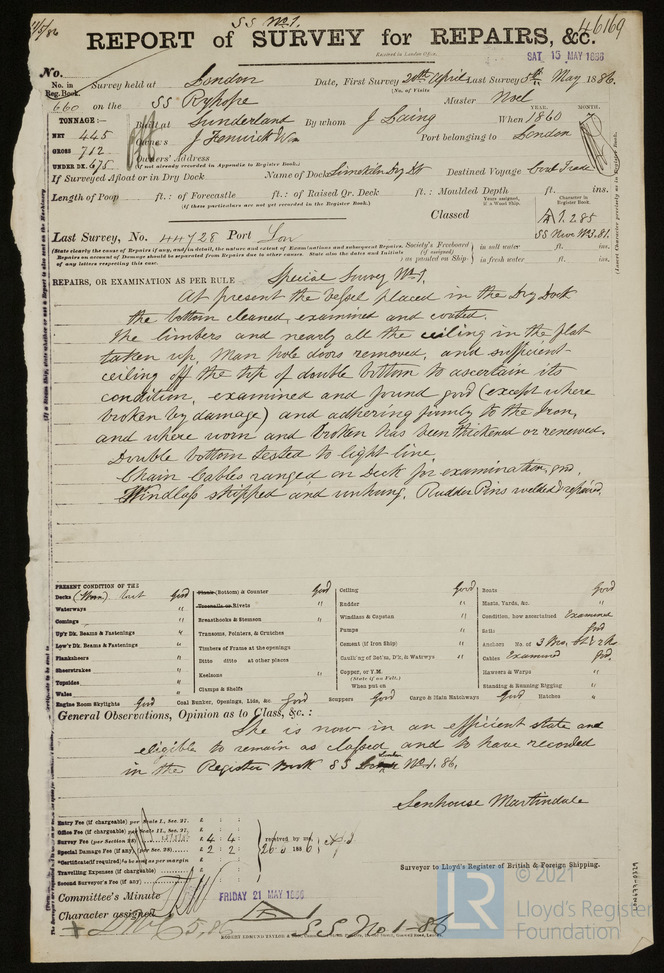 S.S. No. 1.
46169
REPORT of SURVEY for REPAIRS, &c.
Received in London Office,
SAT 15 MAY 1886
No.
No. in Reg. Book.
660
Survey held at London
Date, First Survey 20th April Last Survey 5th May 1886.
(No. of Visits
on the SS Ryhope
Master Noel
TONNAGE:—
NET 445
GROSS 712
UNDER DK. 675
Built at Sunderland
By whom J Laing
YEAR. MONTH.
When 1860
Owners J Fenwick
Port belonging to London
Owners' Address
(if not already recorded in Appendix to Register Book.)
If Surveyed Afloat or in Dry Dock
Name of Dock Limekiln Dry Dk
Destined Voyage Coal Trade
Length of Poop ft.: of Forecastle ft.: of Raised Qr. Deck ft.: Moulded Depth ft. ins.
(if these particulars are not yet recorded in the Register Book.)
Classed
Character in Register Book.
A 1. 2 85
Last Survey, No. 44728 Port Lon
Society's Freeboard (if assigned) as painted on Ship in salt water ft. ins.
in fresh water ft. ins.
REPAIRS, OR EXAMINATION AS PER RULE Special Survey No. 1.
At present the vessel placed in the Dry Dock
the bottom cleaned, examined and coated.
The limbers and nearly all the ceiling in the flat
taken up, Man hole doors removed, and sufficient
ceiling off the top of double bottom to ascertain its
condition, examined and found good (except where
broken by damage) and adhering firmly to the Iron,
and where worn and broken has been thickened or renewed.
Double bottom tested to light line.
Chain Cables ranged on Deck for examination, good.
Windlass stripped and unhung. Rudder Pins welded & repaired.
PRESENT CONDITION OF THE
Decks Good
Waterways "
Comings "
Up'r Dk. Beams & Fastenings "
Low'r Dk. Beams & Fastenings "
Planksheers "
Sheerstrakes "
Topsides "
Wales "
Engine Room Skylights Good
Plank (Bottom) & Counter Good
Treenails or Rivets "
Breasthooks & Stemson "
Transoms, Pointers, & Crutches
Timbers of Frame at the openings
Ditto ditto at other places
Keelsons "
Clamps & Shelfs
Coal Bunker, Openings, Lids, &c. Good
Ceiling Good
Rudder "
Windlass & Capstan "
Pumps "
Cement (if Iron Ship) "
Caulk'g of Bot'm, D'k, & Waterw'ys "
Copper, or Y.M.
(State if on Felt.)
When put on
Scuppers Good
Cargo & Main Hatchways Good
Boats Good
Masts, Yards, &c. "
Condition, how ascertained Examined
Sails Good
Anchors No. of
Cables Examined Good.
Hawsers & Warps "
Standing & Running Rigging "
Hatches "
General Observations, Opinion as to Class, &c.:
She is now in an efficient state and
eligible to remain as classed, and to have recorded
in the Register Book SS London No. 1. 86.
Senhouse Martindale
Surveyor to Lloyd's Register of British & Foreign Shipping.
Entry Fee (if chargeable) per Scale I., Sec. 27. £ : :
Office Fee (if chargeable) per Scale II., Sec. 27. £ : :
Survey Fee (per Section 28) £ 4 : 4 :
Special Damage Fee (if any) (per Sec. 28) £ 2 : 2 :
*Certificate (if required) to be sent as per margin
Travelling Expenses (if chargeable)
Second Surveyor's Fee (if any)
received by me,
Committee's Minute
FRIDAY 21 MAY 1886
Character assigned
SS No 1-86
LR
© 2021
Lloyd's Register
Foundation